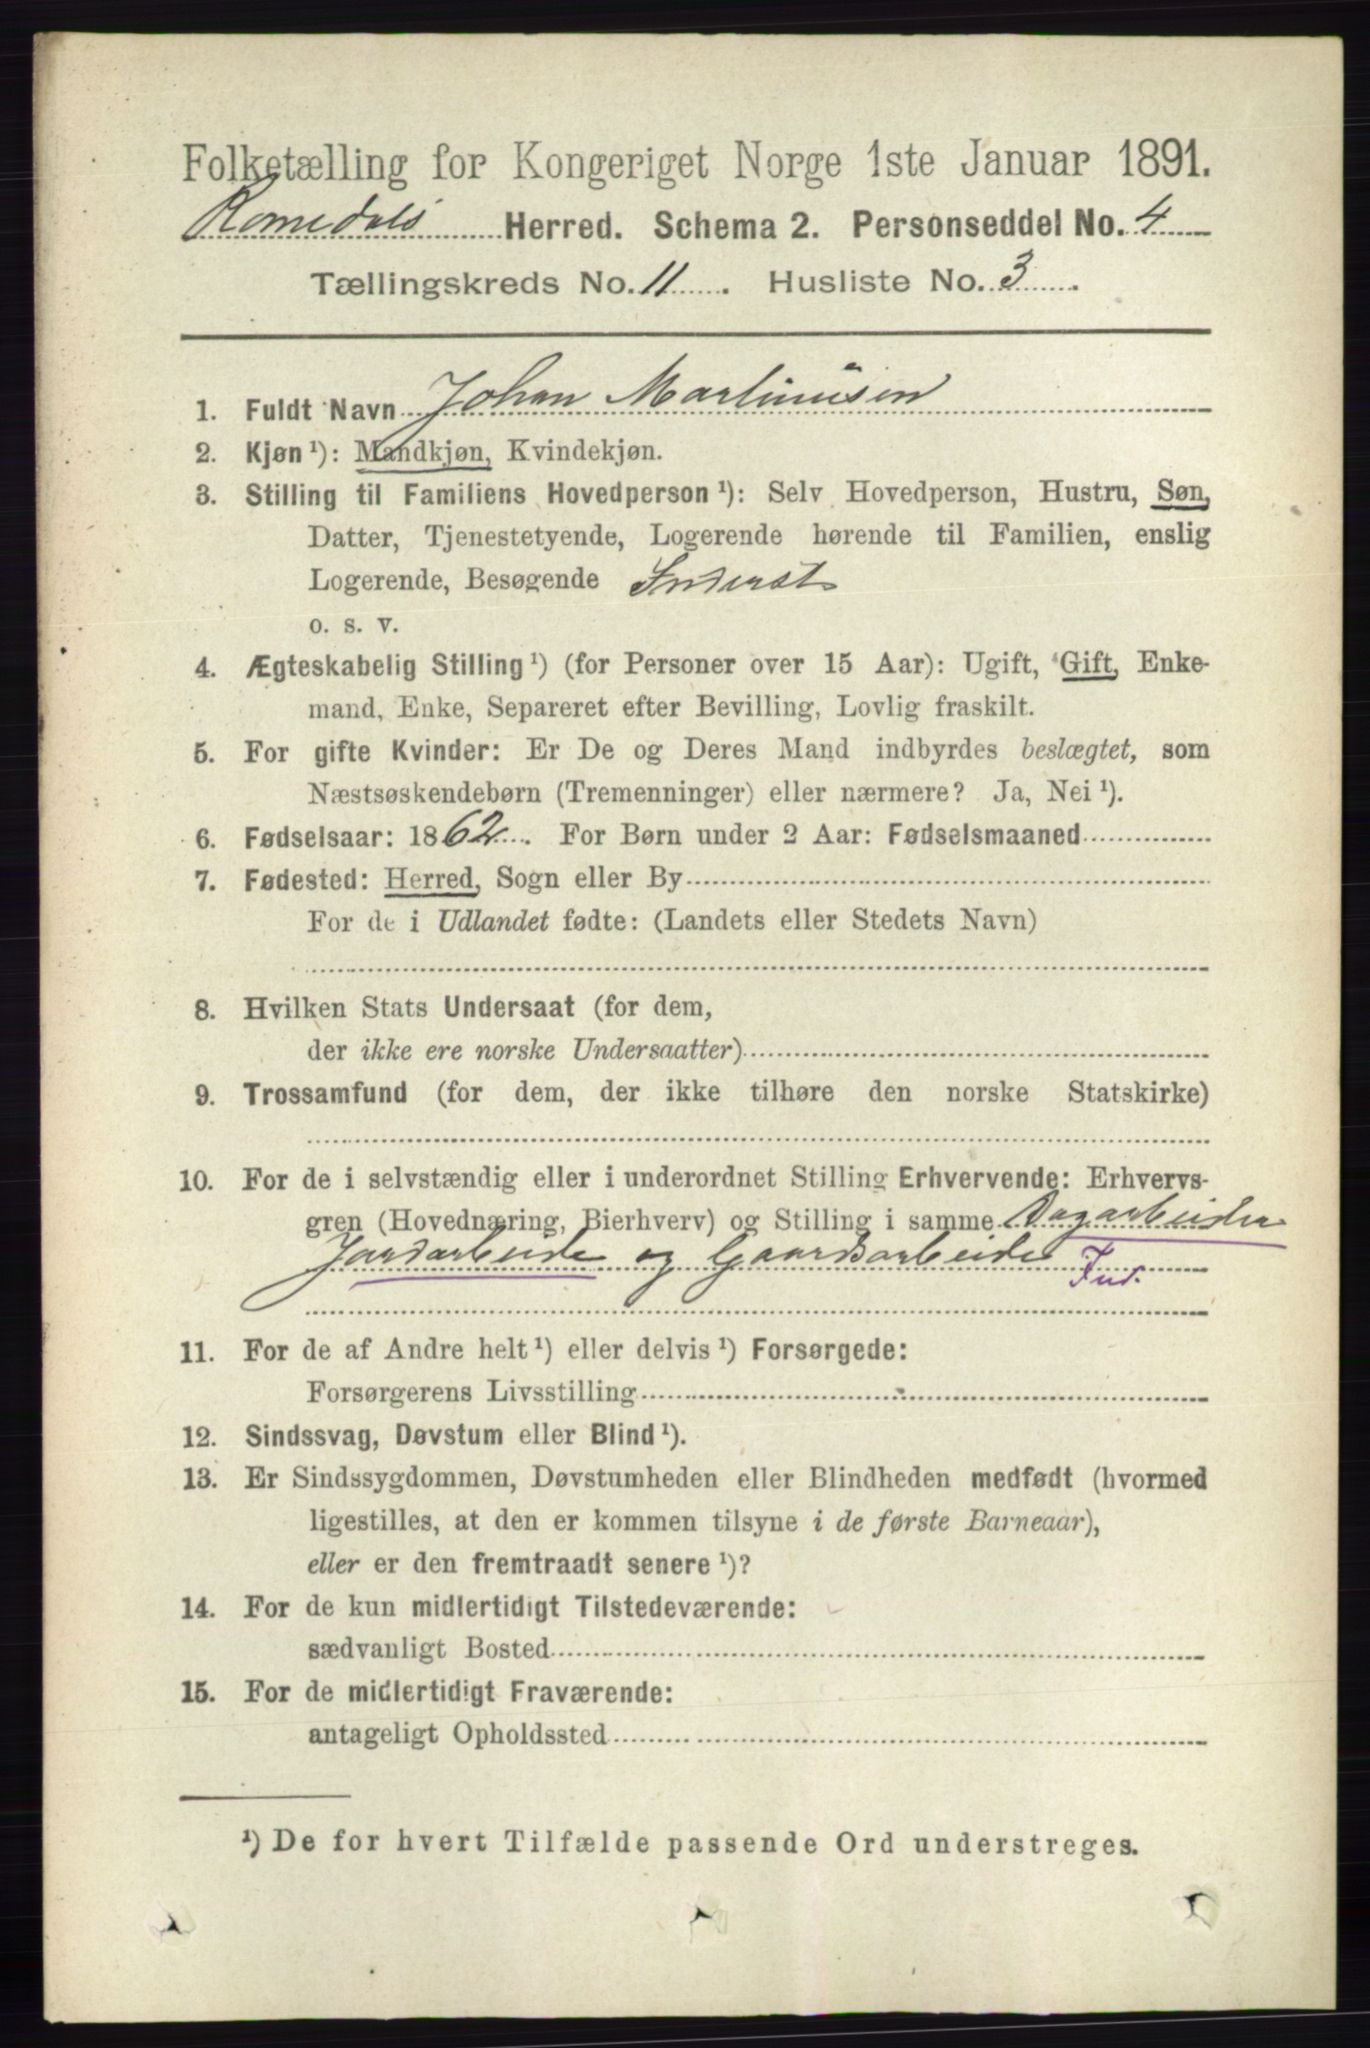 Folketælling for Kongeriget Norge 1ste Januar 1891.
Romedals Herred. Schema 2. Personseddel No. 4
Tællingskreds No. 11. Husliste No. 3.
1. Fuldt Navn Johan Martinusen
2. Kjøn¹): Mandkjøn, Kvindekjøn.
3. Stilling til Familiens Hovedperson¹): Selv Hovedperson, Hustru, Søn,
Datter, Tjenestetyende, Logerende hørende til Familien, enslig
Logerende, Besøgende Inderst
o. s. v.
4. Ægteskabelig Stilling¹) (for Personer over 15 Aar): Ugift, Gift, Enke-
mand, Enke, Separeret efter Bevilling, Lovlig fraskilt.
5. For gifte Kvinder: Er De og Deres Mand indbyrdes beslægtet, som
Næstsøskendebørn (Tremenninger) eller nærmere? Ja, Nei¹).
6. Fødselsaar: 1862. For Børn under 2 Aar: Fødselsmaaned
7. Fødested: Herred, Sogn eller By
For de i Udlandet fødte: (Landets eller Stedets Navn)
8. Hvilken Stats Undersaat (for dem,
der ikke ere norske Undersaatter)
9. Trossamfund (for dem, der ikke tilhøre den norske Statskirke)
10. For de i selvstændig eller i underordnet Stilling Erhvervende: Erhvervs-
gren (Hovednæring, Bierhverv) og Stilling i samme Dagarbeider
Jordarbeide og Gaardsarbeide Ind.
11. For de af Andre helt¹) eller delvis¹) Forsørgede:
Forsørgerens Livsstilling
12. Sindssvag, Døvstum eller Blind¹).
13. Er Sindssygdommen, Døvstumheden eller Blindheden medfødt (hvormed
ligestilles, at den er kommen tilsyne i de første Barneaar),
eller er den fremtraadt senere¹)?
14. For de kun midlertidigt Tilstedeværende:
sædvanligt Bosted
15. For de midlertidigt Fraværende:
antageligt Opholdssted
¹) De for hvert Tilfælde passende Ord understreges.